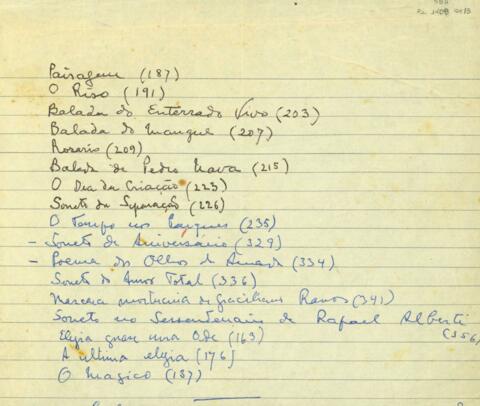 Paisagem (187)
O Riso (191)
Balada do Enterrado Vivo (203)
Balada do Mangue (207)
Rosario (209)
Balada de Pedro Nava (215)
O Dia da Criação (223)
Soneto da Separação (226)
O Tempo nos Parques (235)
- Soneto de Aniversário (329)
- Poema dos Olhos da Amada (334)
Soneto do Amor Total (336)
Mascara mortuaria de Graciliano Ramos (341)
Soneto no Sessentenario de Rafael Alberti
(356)
Elegia quase uma Ode (163)
A ultima elegia (176)
O Magico (137)